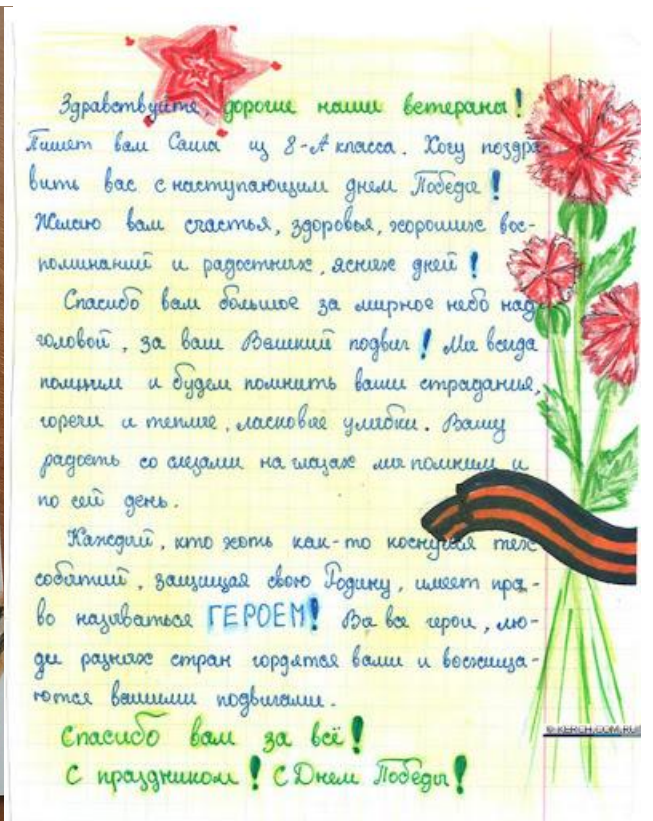 Здравствуйте дорогие наши ветераны!
Пишет вам Саша из 8-А класса. Хочу поздра
вить вас с наступающим днем Победы!
Желаю вам счастья, здоровья, хороших вос-
поминаний и радостных, ясных дней!
Спасибо вам большое за мирное небо над
головой, за ваш Великий подвиг! Мы всегда
помним и будем помнить ваши страдания,
горечи и теплые, ласковые улыбки. Вашу
радость со слезами на глазах мы помним и
по сей день.
Каждый, кто хоть как-то коснулся тех
событий, защищая свою Родину, имеет пра-
во называться ГЕРОЕМ! Вы все герои, лю-
ди разных стран гордятся вами и восхища-
ются вашими подвигами.
Спасибо вам за всё!
С праздником! С Днем Победы!
© KERCH.COM.RU